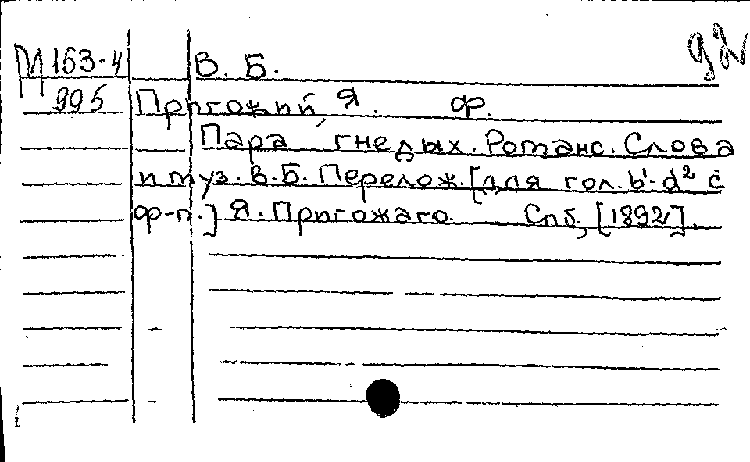 92
М 163-4 В. Б.
995 Пригожий, Я. Ф.
Пара гнедых. Романс. Слова
и муз. В.Б. Перелож. [для гол. b¹-d² с
ф-п.] Я. Пригожаго. Спб, [1892].